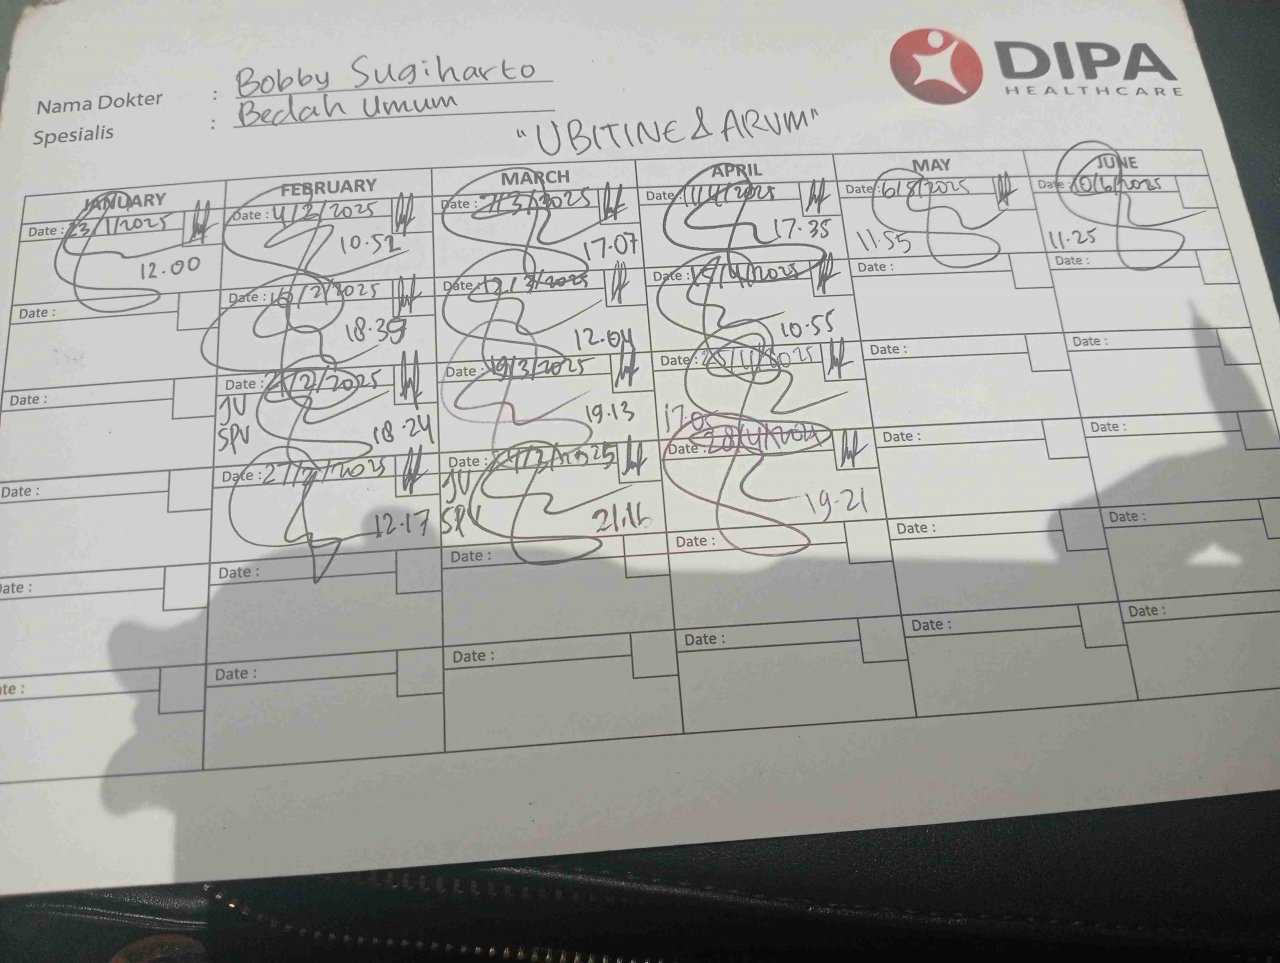 DIPA
HEALTHCARE
Nama Dokter : Bobby Sugiharto
Spesialis : Bedah Umum
"UBITINE & ARUM"
JANUARY FEBRUARY MARCH APRIL MAY JUNE
Date : 23/1/2025 Date : 4/2/2025 Date : /3/2025 Date : /4/2025 Date : 6/8/2025 Date : 10/6/2025
12.00 10.52 17.07 17.35 11.55 11.25
Date : Date : /2/2025 Date : 12/3/2025 Date : 15/4/2025 Date : Date :
18.39 12.04 10.55
Date : Date : 21/2/2025 Date : 19/3/2025 Date : /4/2025 Date : Date :
JV
SPV 18.24 19.13 17.05
Date : Date : 27/2/2025 Date : /3/2025 Date : 28/4/ Date : Date :
JV
12.17 SPV 21.16 19.21
ate : Date : Date : Date : Date : Date :
te : Date : Date : Date : Date : Date :